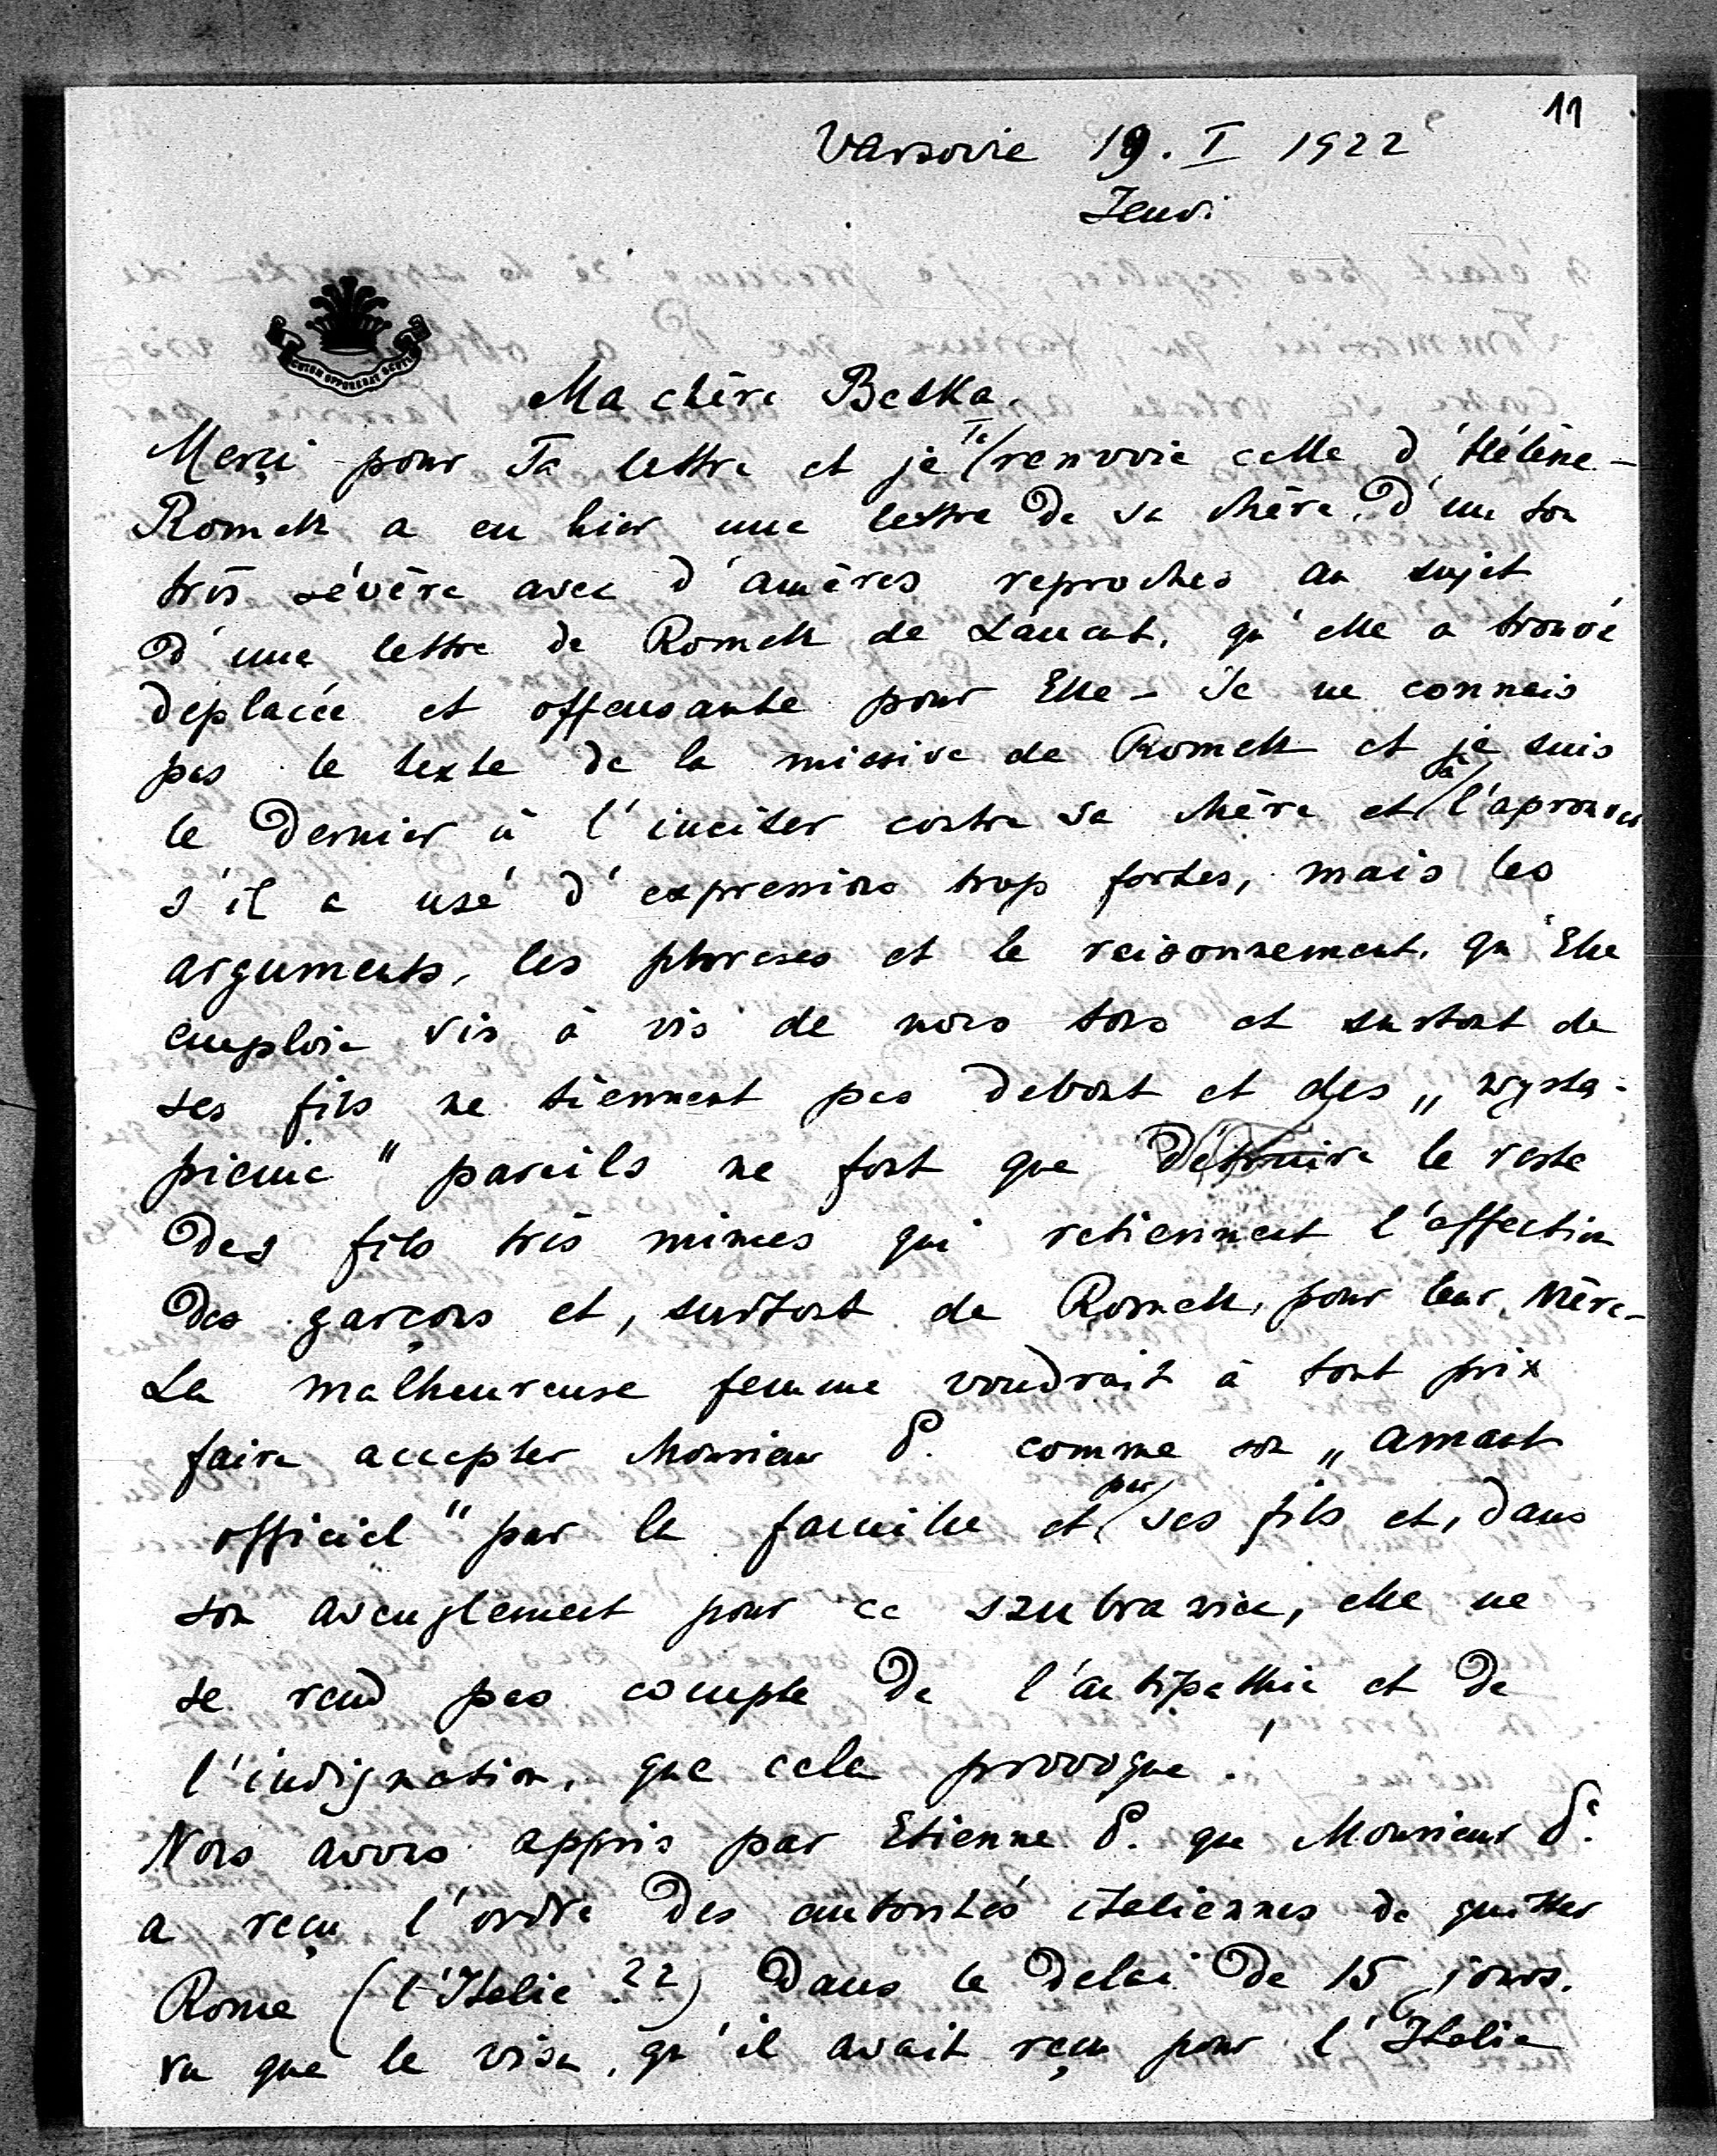 11
Varsovie 19. I 1922
Jeudi
Ma chère Betka.
Merçi pour Ta lettre et je Te renvoie celle d'Hélène -
Romek a eu hier une lettre de sa Mère, d'un ton
très sévère avec d'amères reproches au sujet
d'une lettre de Romek de Łańcut, qu'elle a trouvé
deplacée et offensante pour Elle - Je ne connais
pas le texte de la missive de Romek et je suis
le dernier à l'inciter contre sa Mère et à l'aprouver
s'il a usé d'expressions trop fortes, mais les
arguments, les phrases et le raisonnement, qu'Elle
emploie vis à vis de nous tous et surtout de
ses fils ne tiennent pas debout et des „wystą-
pienie" pareils ne font que détruire le reste
des fils très minces qui retiennent l'affection
des garçons et, surtout de Romek, pour leur Mère -
La malheureuse femme voudrait à tout prix
faire accepter Monsieur P. comme son „amant
officiel" par la famille et par ses fils et, dans
son aveuglement pour ce szubrawiec, elle ne
se rend pas compte de l'antipathie et de
l'indignation, que cela provoque!
Nous avons appris par Etienne P. que Monsieur P.
a reçu l'ordre des autorités italiennes de quitter
Rome (l'Italie ??) dans le delai de 15 jours,
vu que le visa, qu'il avait reçu pour l'Italie